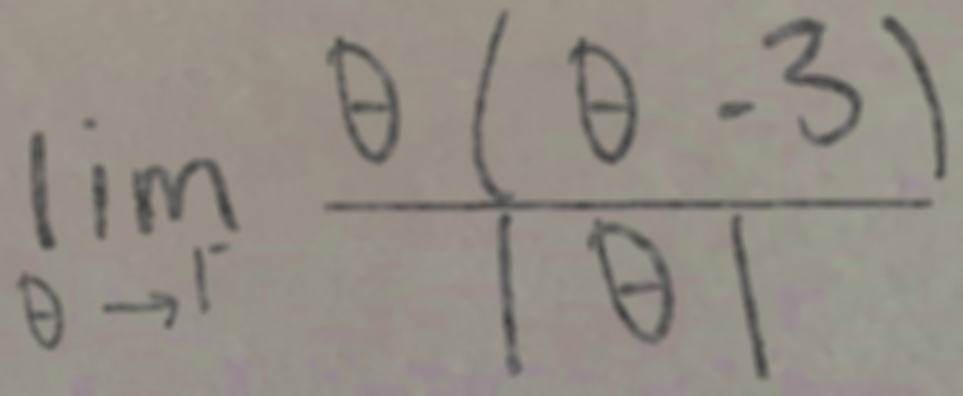 lim θ→1⁻ θ(θ-3)/|θ|